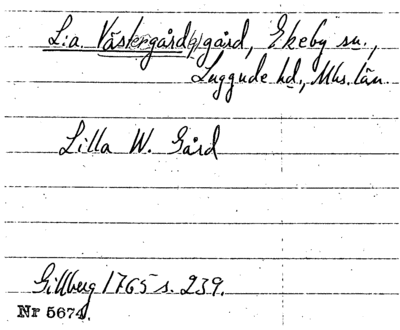 L:a Västergård(s)gård, Ekeby sn.,
Luggude hd., Mhs. län.
Lilla W. Gård
Gillberg 1765 s. 239.
Nr 5674.